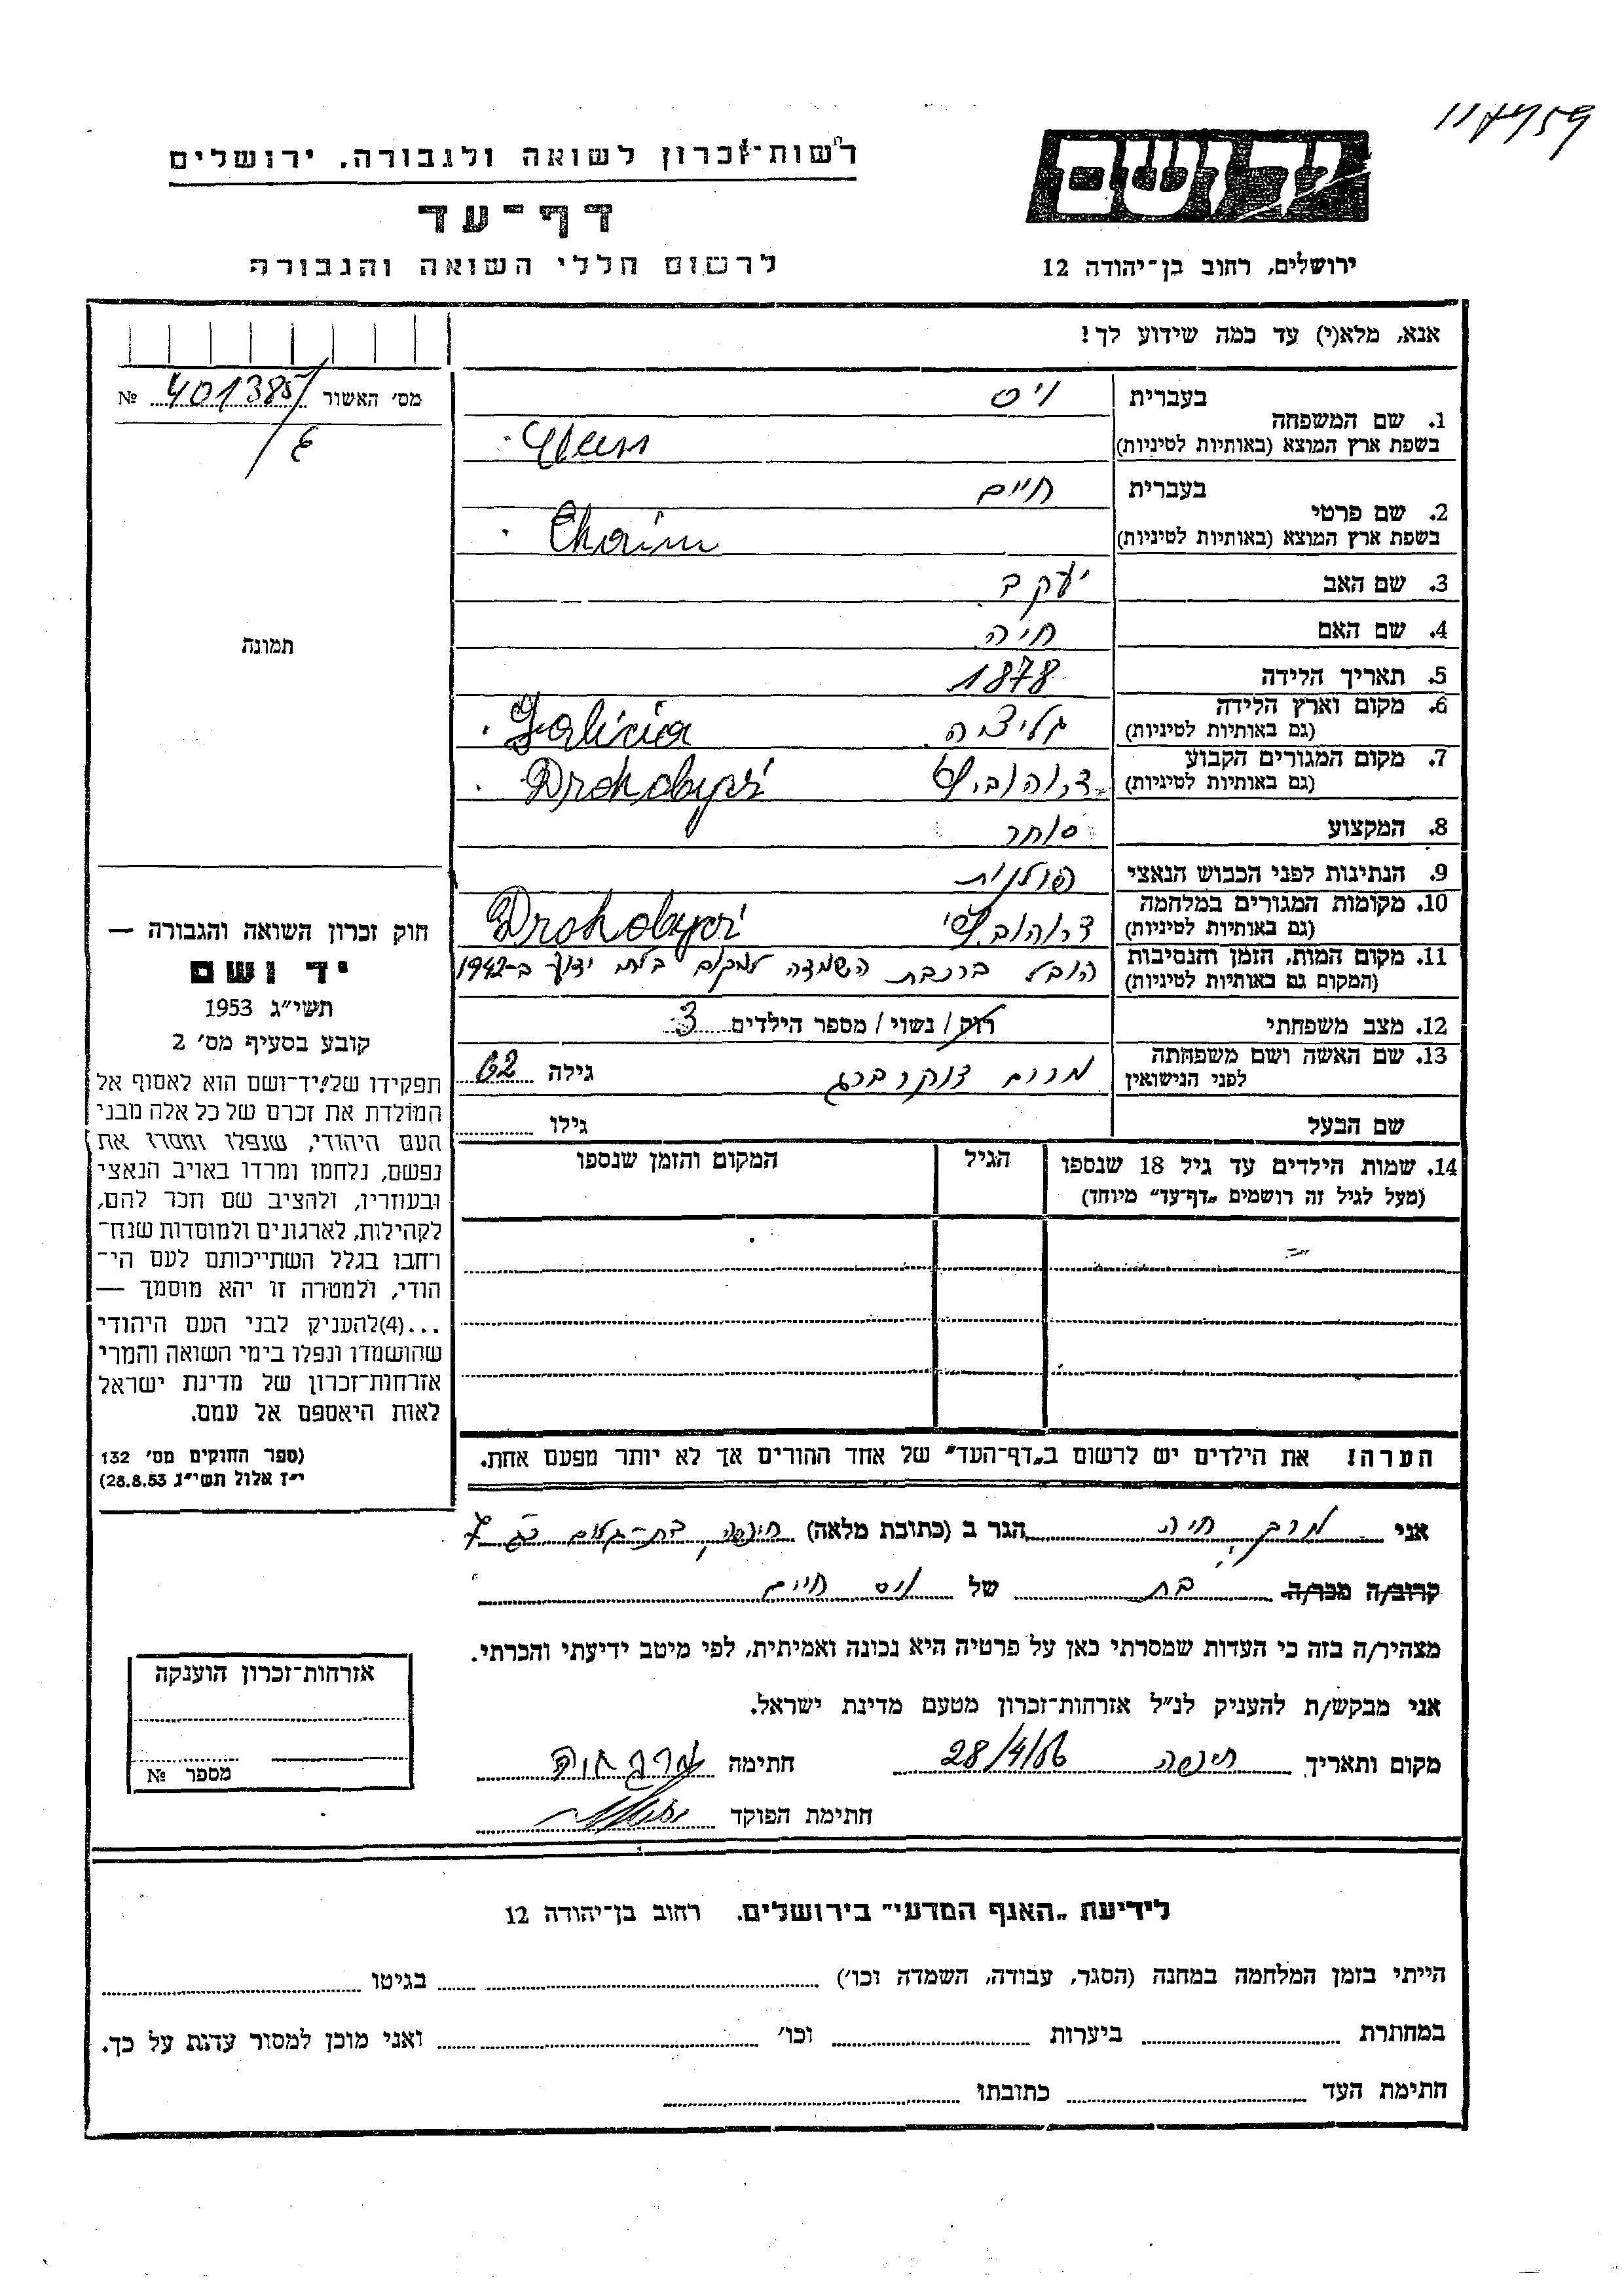 117459
רשות-זכרון לשואה ולגבורה, ירושלים
יד ושם
דף-עד
לרשום חללי השואה והגבורה
ירושלים, רחוב בן-יהודה 12
אנא, מלא(י) עד כמה שידוע לך!
מס׳ האשור 401385 №
בעברית ויס
1. שם המשפחה
בשפת ארץ המוצא (באותיות לטיניות)
בעברית חיים
2. שם פרטי
בשפת ארץ המוצא (באותיות לטיניות) Chaim
3. שם האב יעקב
4. שם האם חיה
תמונה
5. תאריך הלידה 1878
6. מקום וארץ הלידה גליציה Galicia
(גם באותיות לטיניות)
7. מקום המגורים הקבוע Drohobycz
(גם באותיות לטיניות)
8. המקצוע סוחר
9. הנתינות לפני הכבוש הנאצי פולנית
10. מקומות המגורים במלחמה Drohobycz
(גם באותיות לטיניות)
11. מקום המות, הזמן והנסיבות הובל ברכבת השמדה למקום בלתי ידוע ב-1942
(המקום גם באותיות לטיניות)
12. מצב משפחתי רווק / נשוי / מספר הילדים 3
13. שם האשה ושם משפחתה מרים צוקרברג גילה 62
לפני הנישואין
שם הבעל גילו
14. שמות הילדים עד גיל 18 שנספו הגיל המקום והזמן שנספו
(מעל לגיל זה רושמים „דף-עד״ מיוחד)
הערה! את הילדים יש לרשום ב„דף-העד״ של אחד ההורים אך לא יותר מפעם אחת.
חוק זכרון השואה והגבורה —
יד ושם
תשי״ג 1953
קובע בסעיף מס׳ 2
תפקידו של יד-ושם הוא לאסוף אל
המולדת את זכרם של כל אלה מבני
העם היהודי, שנפלו ומסרו את
נפשם, נלחמו ומרדו באויב הנאצי
ובעוזריו, ולהציב שם וזכר להם,
לקהילות, לארגונים ולמוסדות שנח־
רבו בגלל השתייכותם לעם הי־
הודי, ולמטרה זו יהא מוסמך —
...(4)להעניק לבני העם היהודי
שהושמדו ונפלו בימי השואה והמרי
אזרחות-זכרון של מדינת ישראל
לאות היאספם אל עמם.
(ספר החוקים מס׳ 132
י״ז אלול תשי״ג 28.8.53)
אני חיה הגר ב (כתובת מלאה) חיפה, בת-גלים
קרוב/ה מכר/ה בת של ויס חיים
מצהיר/ה בזה כי העדות שמסרתי כאן על פרטיה היא נכונה ואמיתית, לפי מיטב ידיעתי והכרתי.
אני מבקש/ת להעניק לנ״ל אזרחות-זכרון מטעם מדינת ישראל.
מקום ותאריך חיפה 28/4/56 חתימה
חתימת הפוקד
אזרחות-זכרון הוענקה
מספר №
לידיעת „האגף המדעי״ בירושלים. רחוב בן-יהודה 12
הייתי בזמן המלחמה במחנה (הסגר, עבודה, השמדה וכו׳) בגיטו
במחתרת ביערות וכו׳ ואני מוכן למסור עדות על כך.
חתימת העד כתובתו